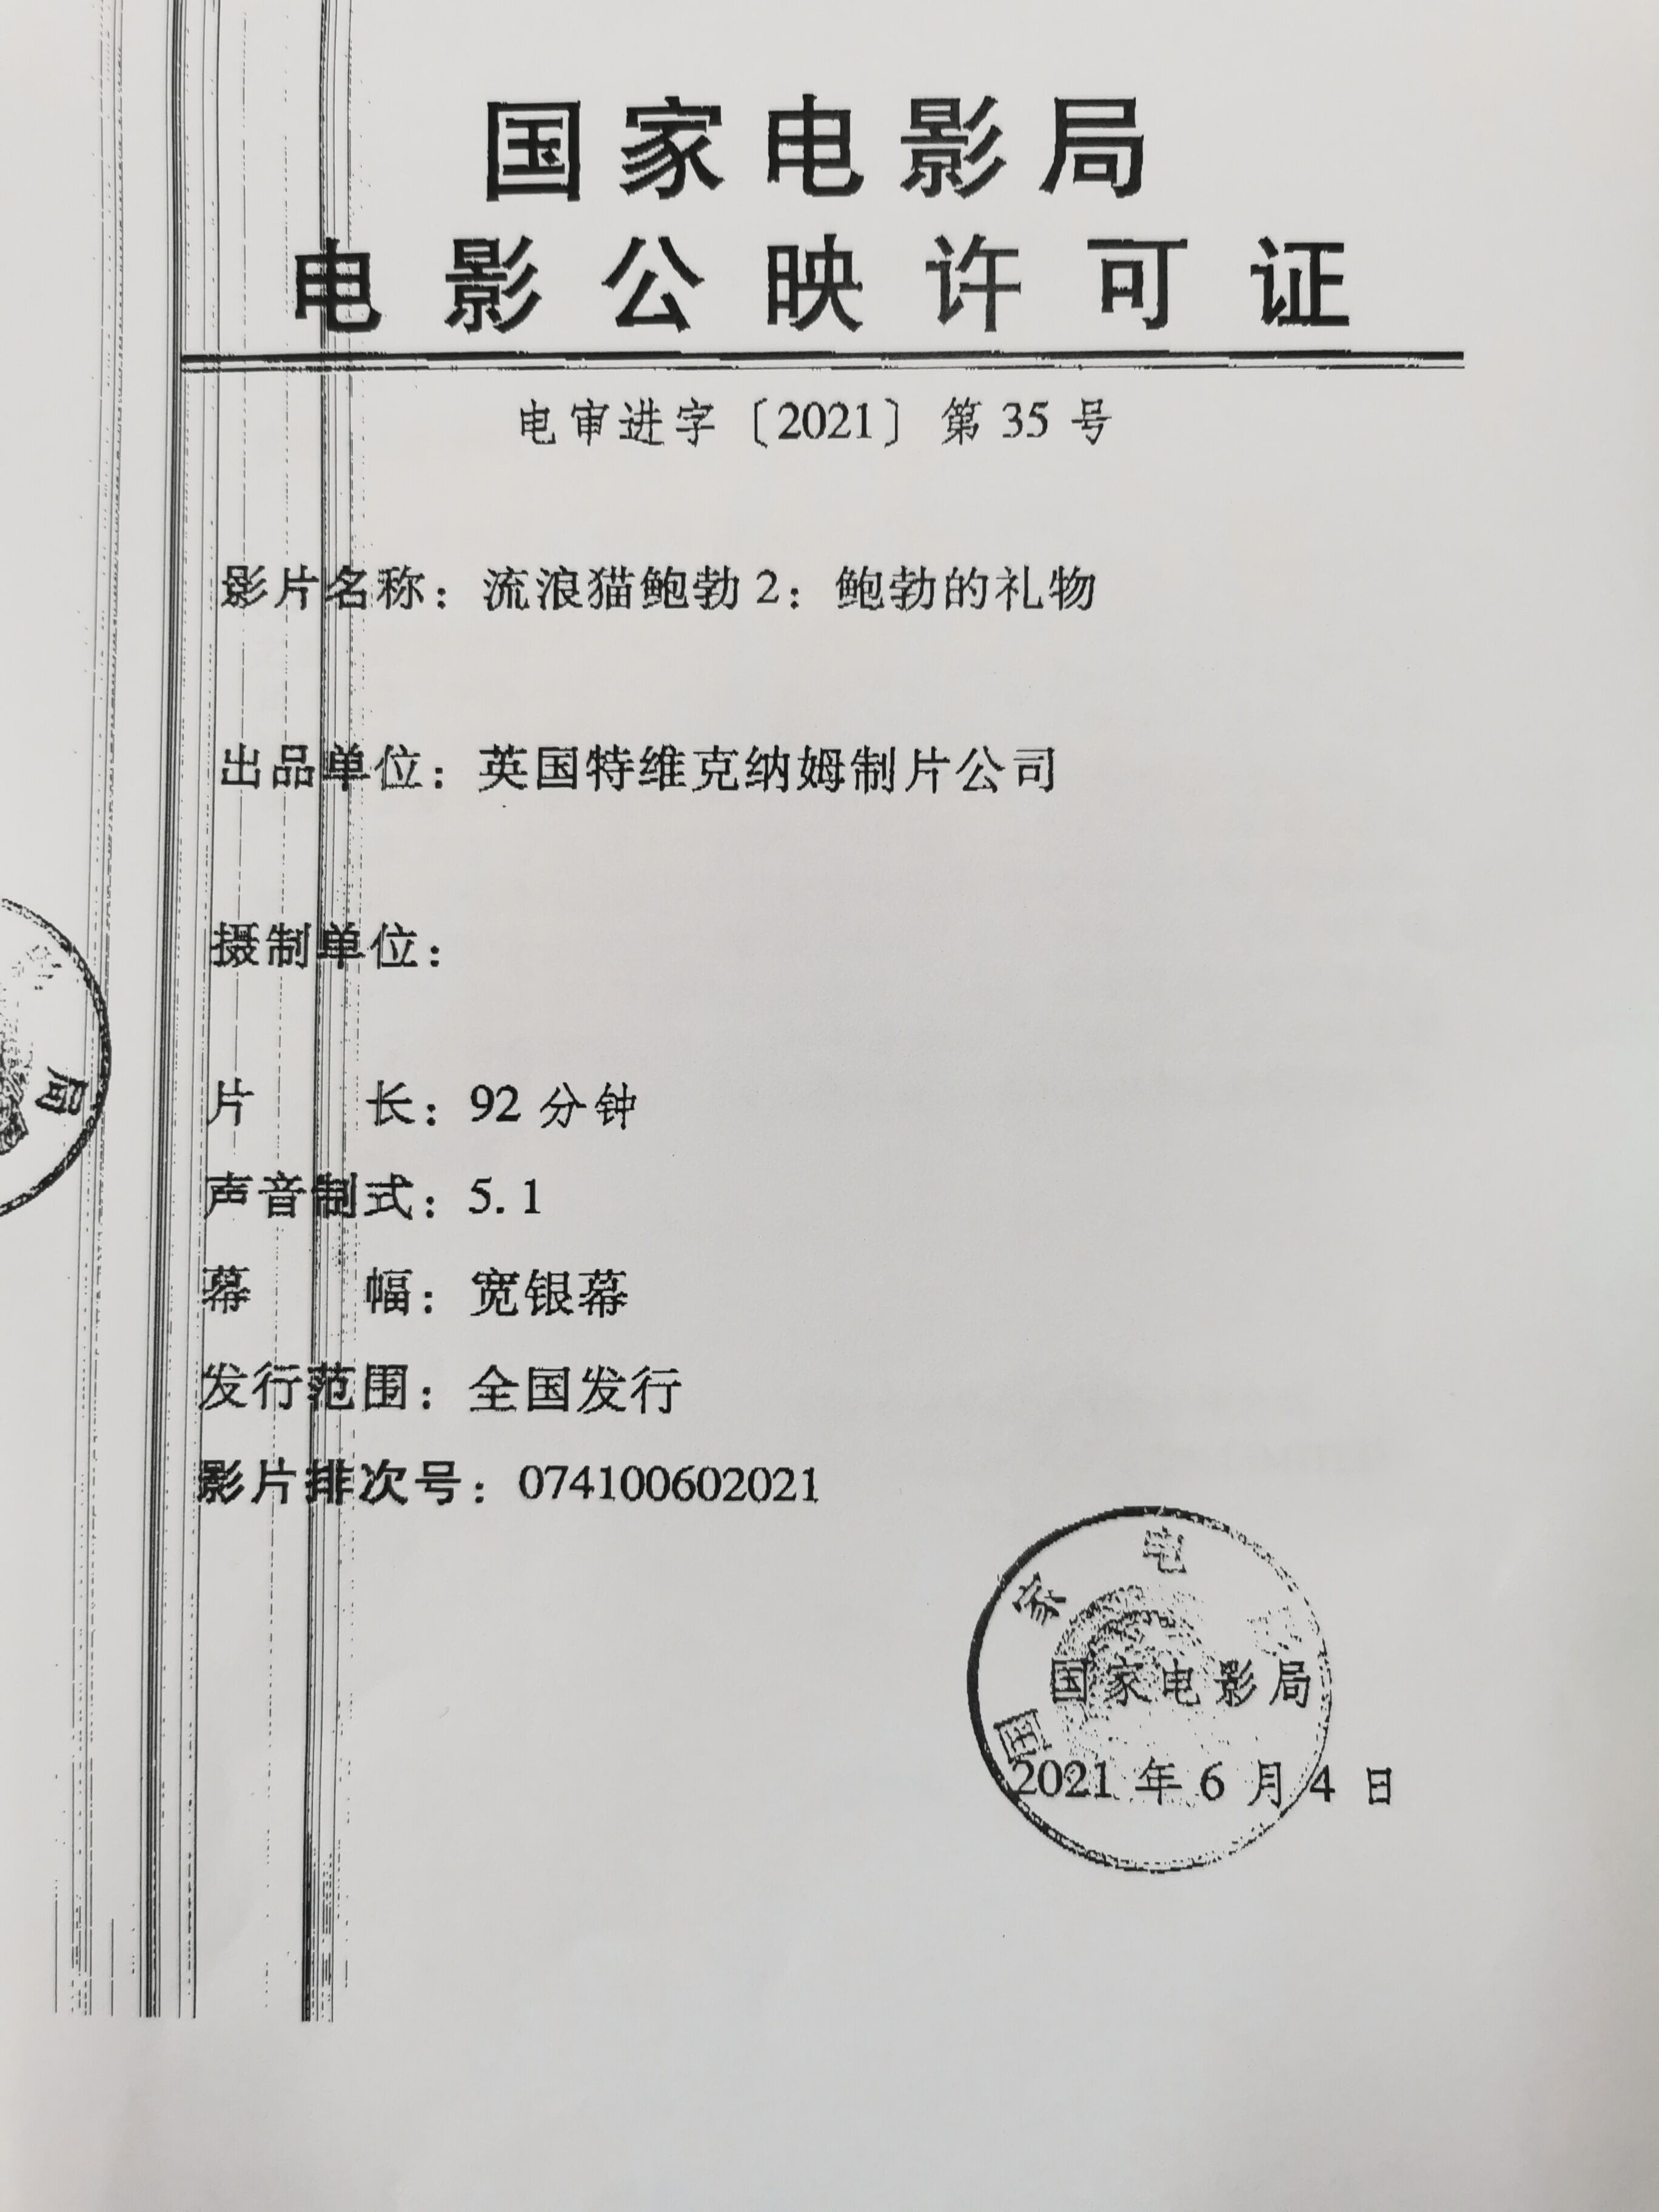 国家电影局
电影公映许可证
电审进字〔2021〕第 35 号
影片名称：流浪猫鲍勃 2：鲍勃的礼物
出品单位：英国特维克纳姆制片公司
摄制单位：
局
片 长：92 分钟
声音制式：5.1
幕 幅：宽银幕
发行范围：全国发行
影片排次号：074100602021
国家电
国家电影局
2021 年 6 月 4 日